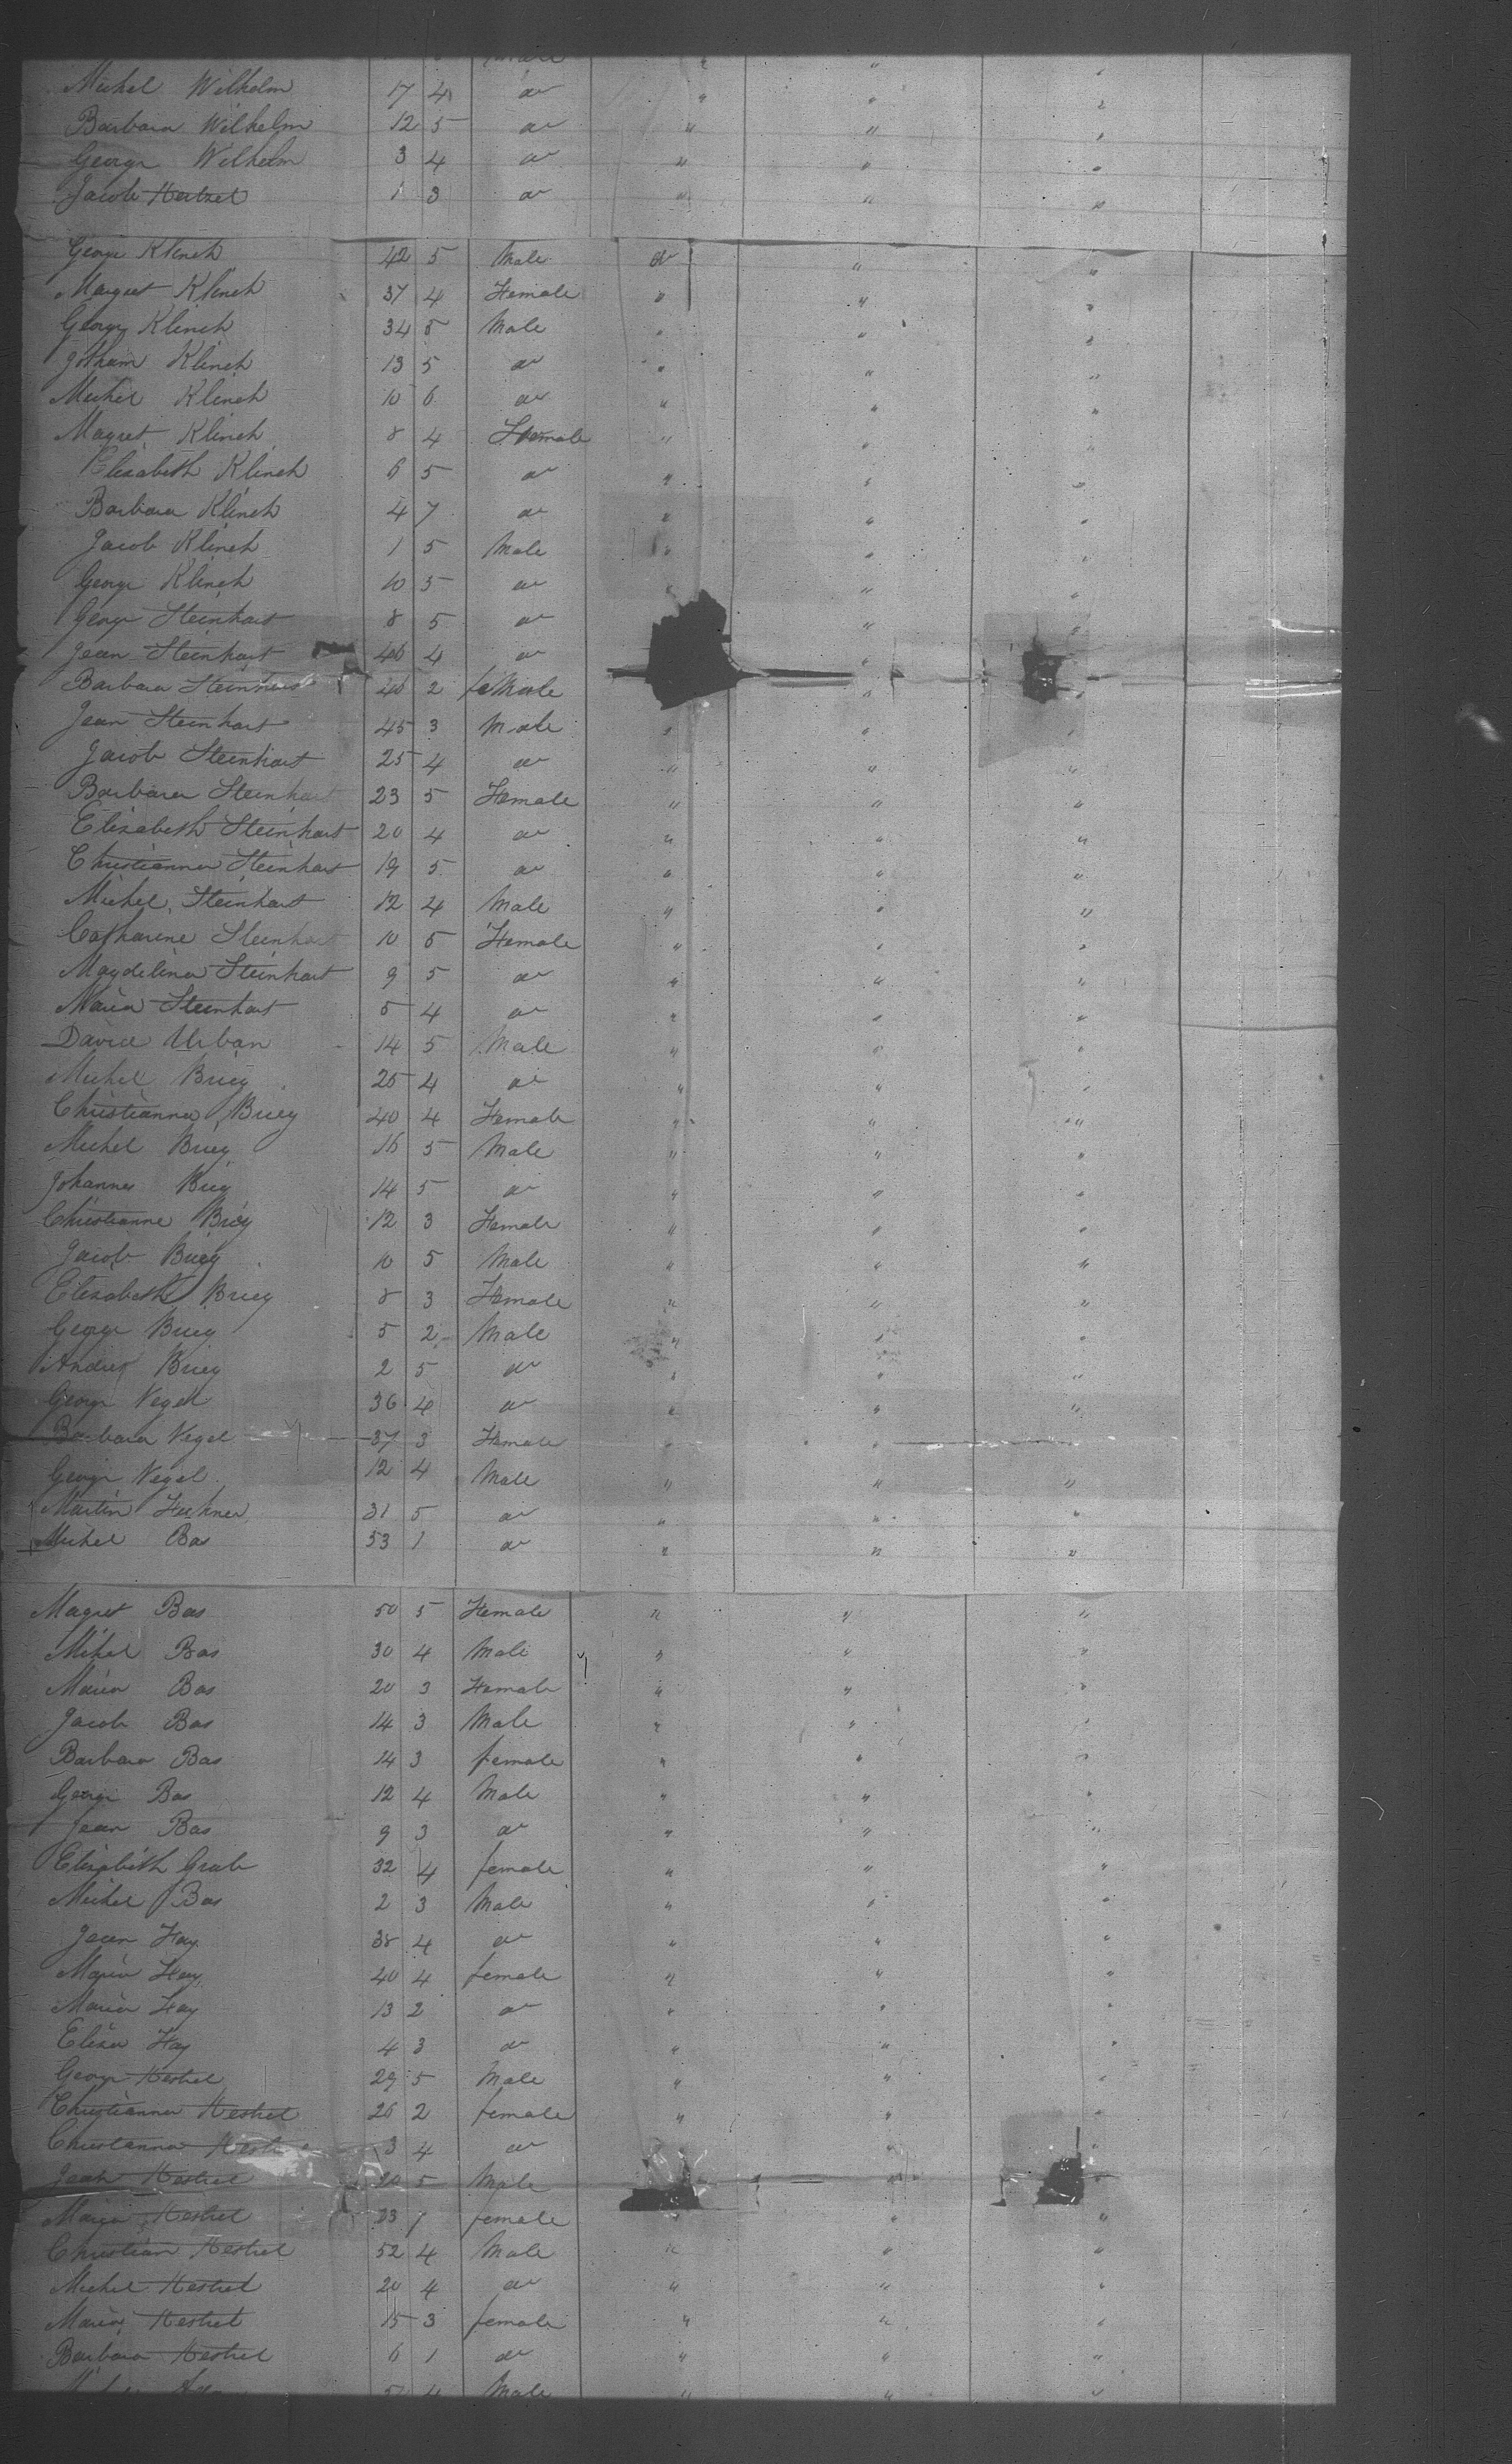 Michel Wilhelm 17 4 do " " "
Barbara Wilhelm 12 5 do " " "
George Wilhelm 3 4 do " " "
Jacob Hertzel 1 3 do " " "
George Klinch 42 5 Male do " "
Margret Klinch 37 4 Female " " "
George Klinch 34 5 Male " " "
Jotham Klinch 13 5 do " " "
Michel Klinch 10 6 do " " "
Magret Klinch 8 4 Female " " "
Elizabeth Klinch 6 5 do " " "
Barbara Klinch 4 7 do " " "
Jacob Klinch 1 5 Male " " "
George Klinch 10 5 do " " "
George Steinhart 8 5 do " "
Jean Steinhart 46 4 do "
Barbara Steinhart 40 2 feMale " "
Jean Steinhart 45 3 Male " " "
Jacob Steinhart 25 4 do " " "
Barbara Steinhart 23 5 Female " " "
Elizabeth Steinhart 20 4 do " " "
Christianna Steinhart 19 5 do " " "
Michel Steinhart 12 4 Male " " "
Catharine Steinhart 10 5 Female " " "
Magdelina Steinhart 9 5 do " " "
Maria Steinhart 5 4 do " " "
David Urban 14 5 Male " " "
Michel Briey 25 4 do " " "
Christianna Briey 40 4 Female " " "
Michel Briey 16 5 Male " " "
Johannes Briey 14 5 do " " "
Christianne Briey 12 3 Female " " "
Jacob Briey 10 5 Male " " "
Elizabeth Briey 8 3 Female " " "
George Briey 5 2 Male " " "
Andres Briey 2 5 do " " "
George Vegel 36 4 do " " "
Barbara Vegel 37 3 Female " "
George Vegel 12 4 Male " " "
Martin 31 5 do " " "
Michel Bas 53 1 do " " "
Magret Bas 50 5 Female " " "
Mihel Bas 30 4 Male " " "
Maria Bas 20 3 Female " " "
Jacob Bas 14 3 Male " " "
Barbara Bas 14 3 female " " "
George Bas 12 4 Male " " "
Jean Bas 9 3 do " " "
Elizabeth Grab 32 4 female " " "
Michel Bas 2 3 Male " " "
Jean Hay 38 4 do " " "
Maria Hay 40 4 female " " "
Maria Hay 13 2 do " " "
Elisa Hay 4 3 do " " "
George Hestrel 29 5 Male " " "
Christianna Hestrel 26 2 female " " "
Christanna 3 4 do " "
Jean Hestrel 20 5 Male "
Maria Hestrel 23 1 female " " "
Christian Hestrel 52 4 Male " " "
Michel Hestrel 20 4 do " " "
Maria Hestrel 15 3 female " " "
Barbara Hestrel 6 1 do " " "
4 Male " " "